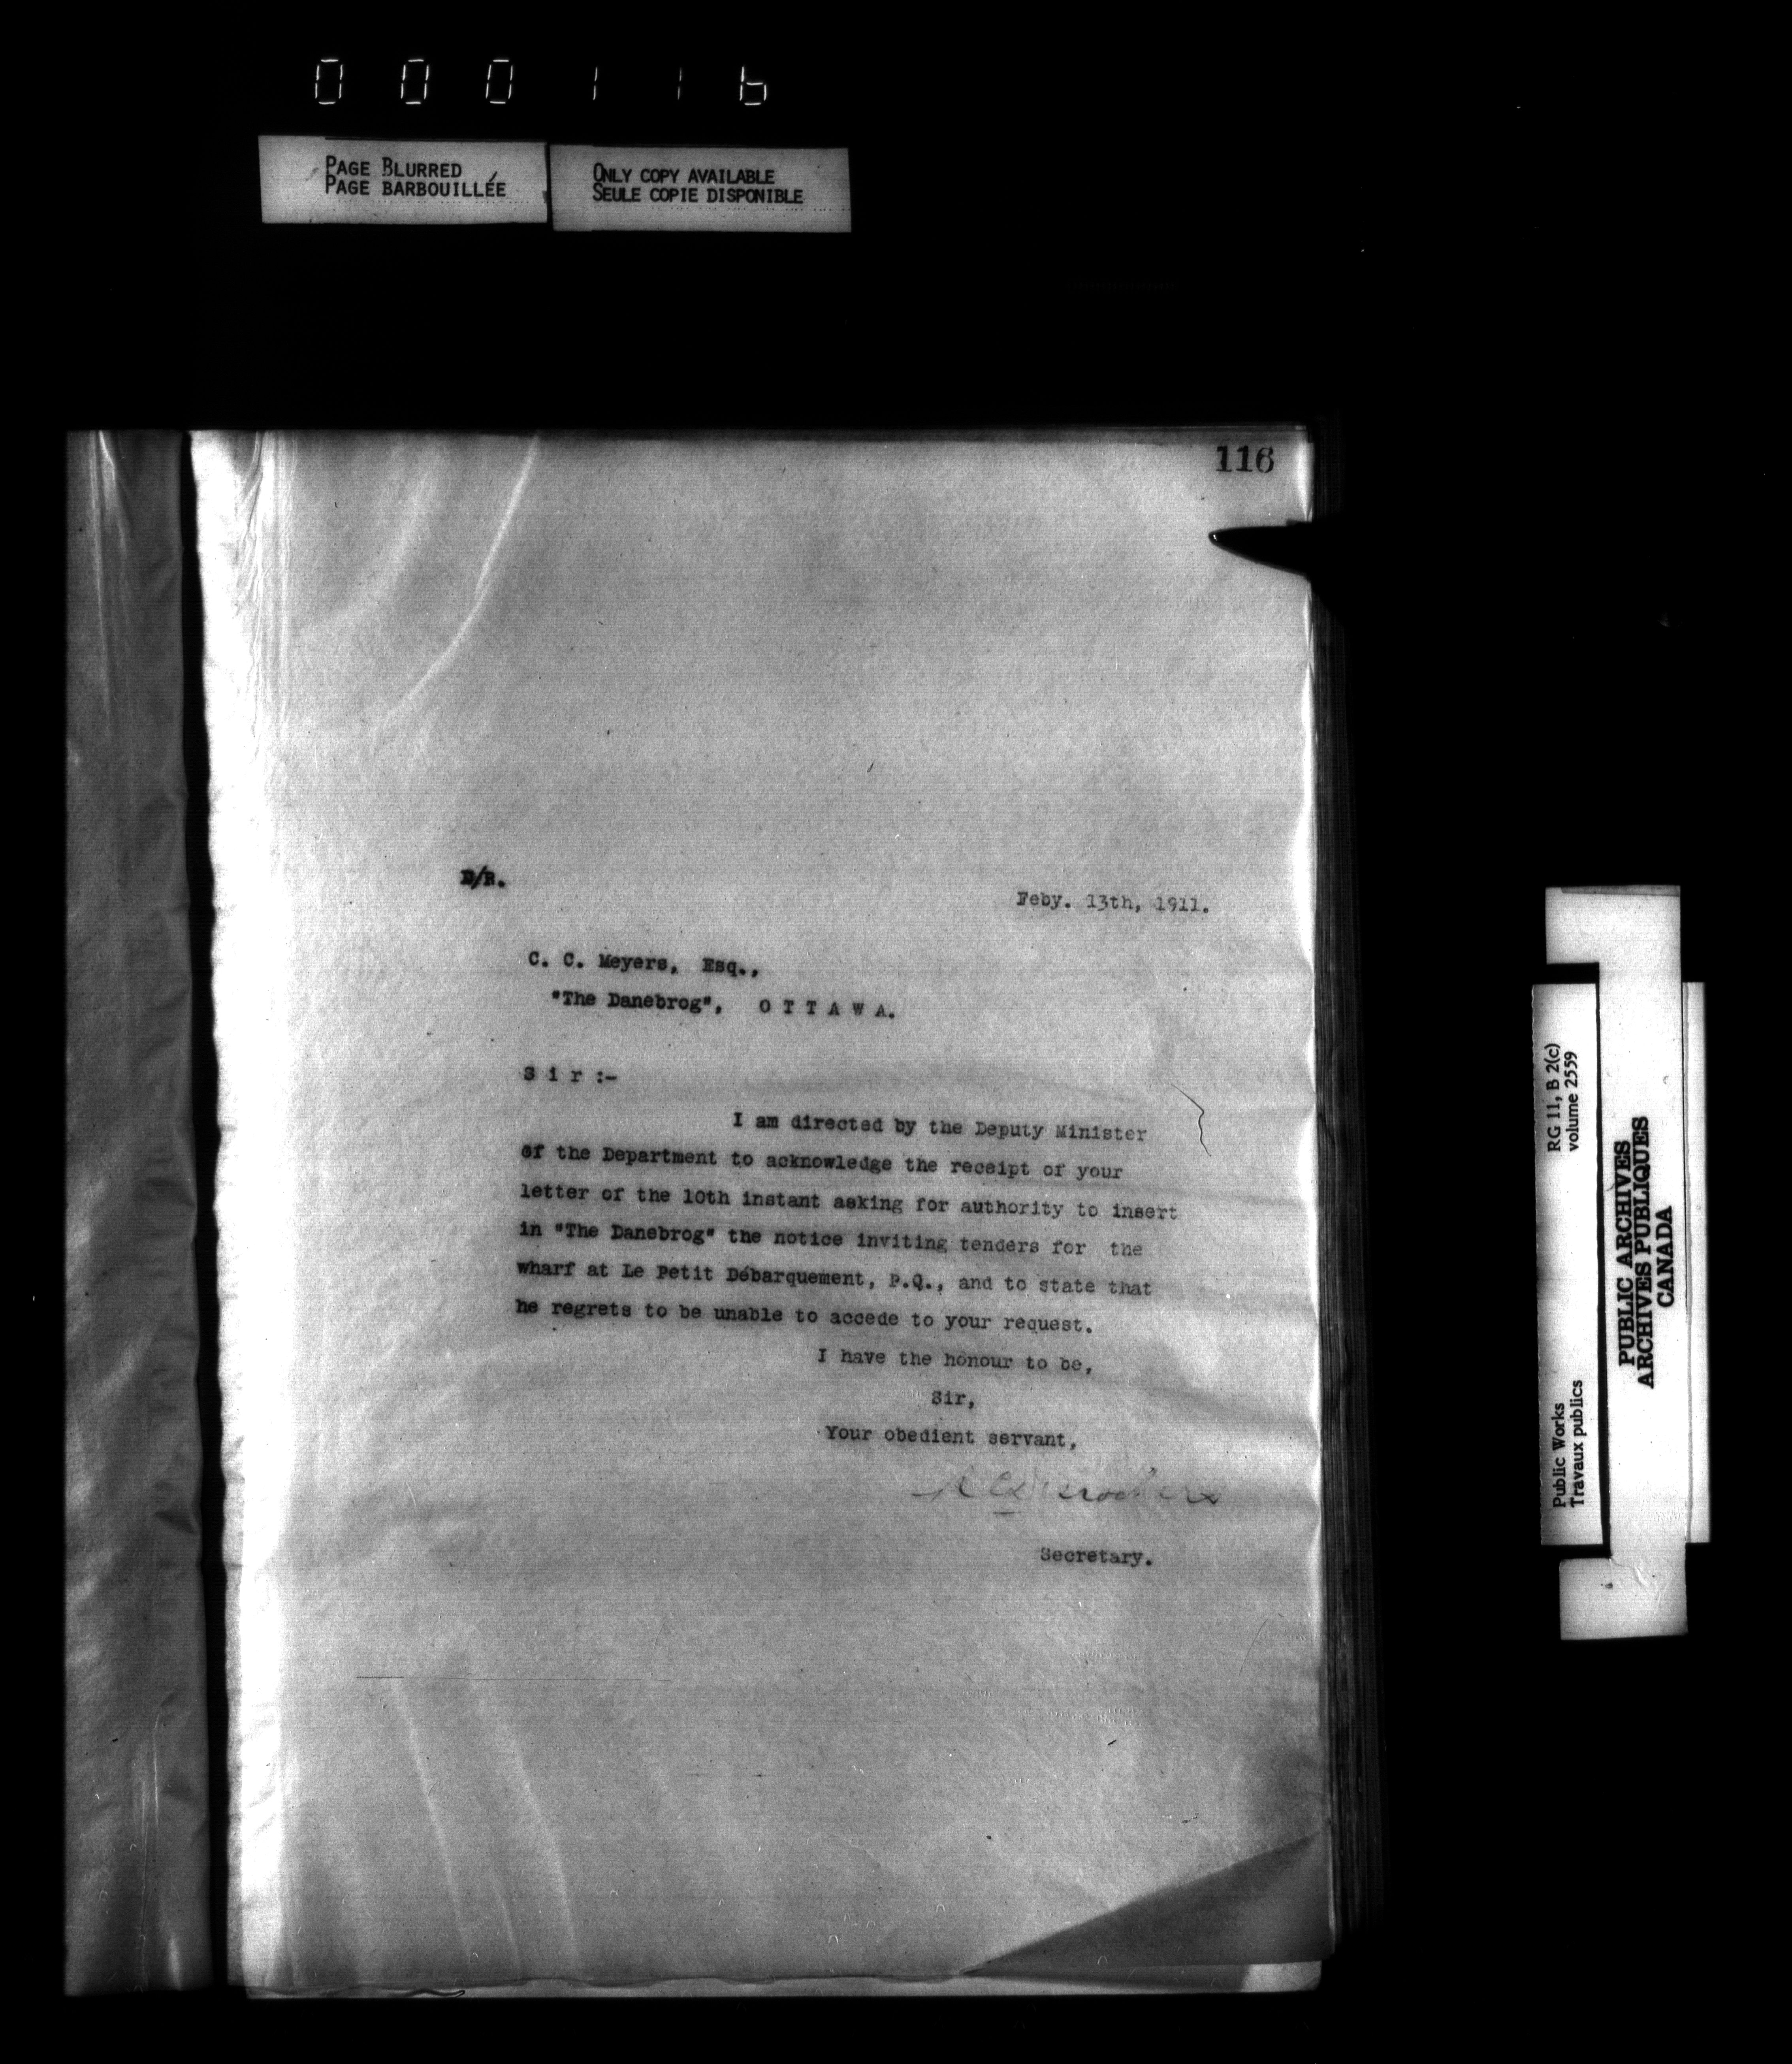 000116
PAGE BLURRED
PAGE BARBOUILLÉE
ONLY COPY AVAILABLE
SEULE COPIE DISPONIBLE
116
D/R.
Feby. 13th, 1911.
C. C. Meyers, Esq.,
"The Danebrog", O T T A W A.
S i r :-
I am directed by the Deputy Minister
of the Department to acknowledge the receipt of your
letter of the 10th instant asking for authority to insert
in "The Danebrog" the notice inviting tenders for the
wharf at Le Petit Débarquement, P.Q., and to state that
he regrets to be unable to accede to your request.
I have the honour to be,
Sir,
Your obedient servant,
Secretary.
RG 11, B 2(c)
volume 2559
Public Works
Travaux publics
PUBLIC ARCHIVES
ARCHIVES PUBLIQUES
CANADA